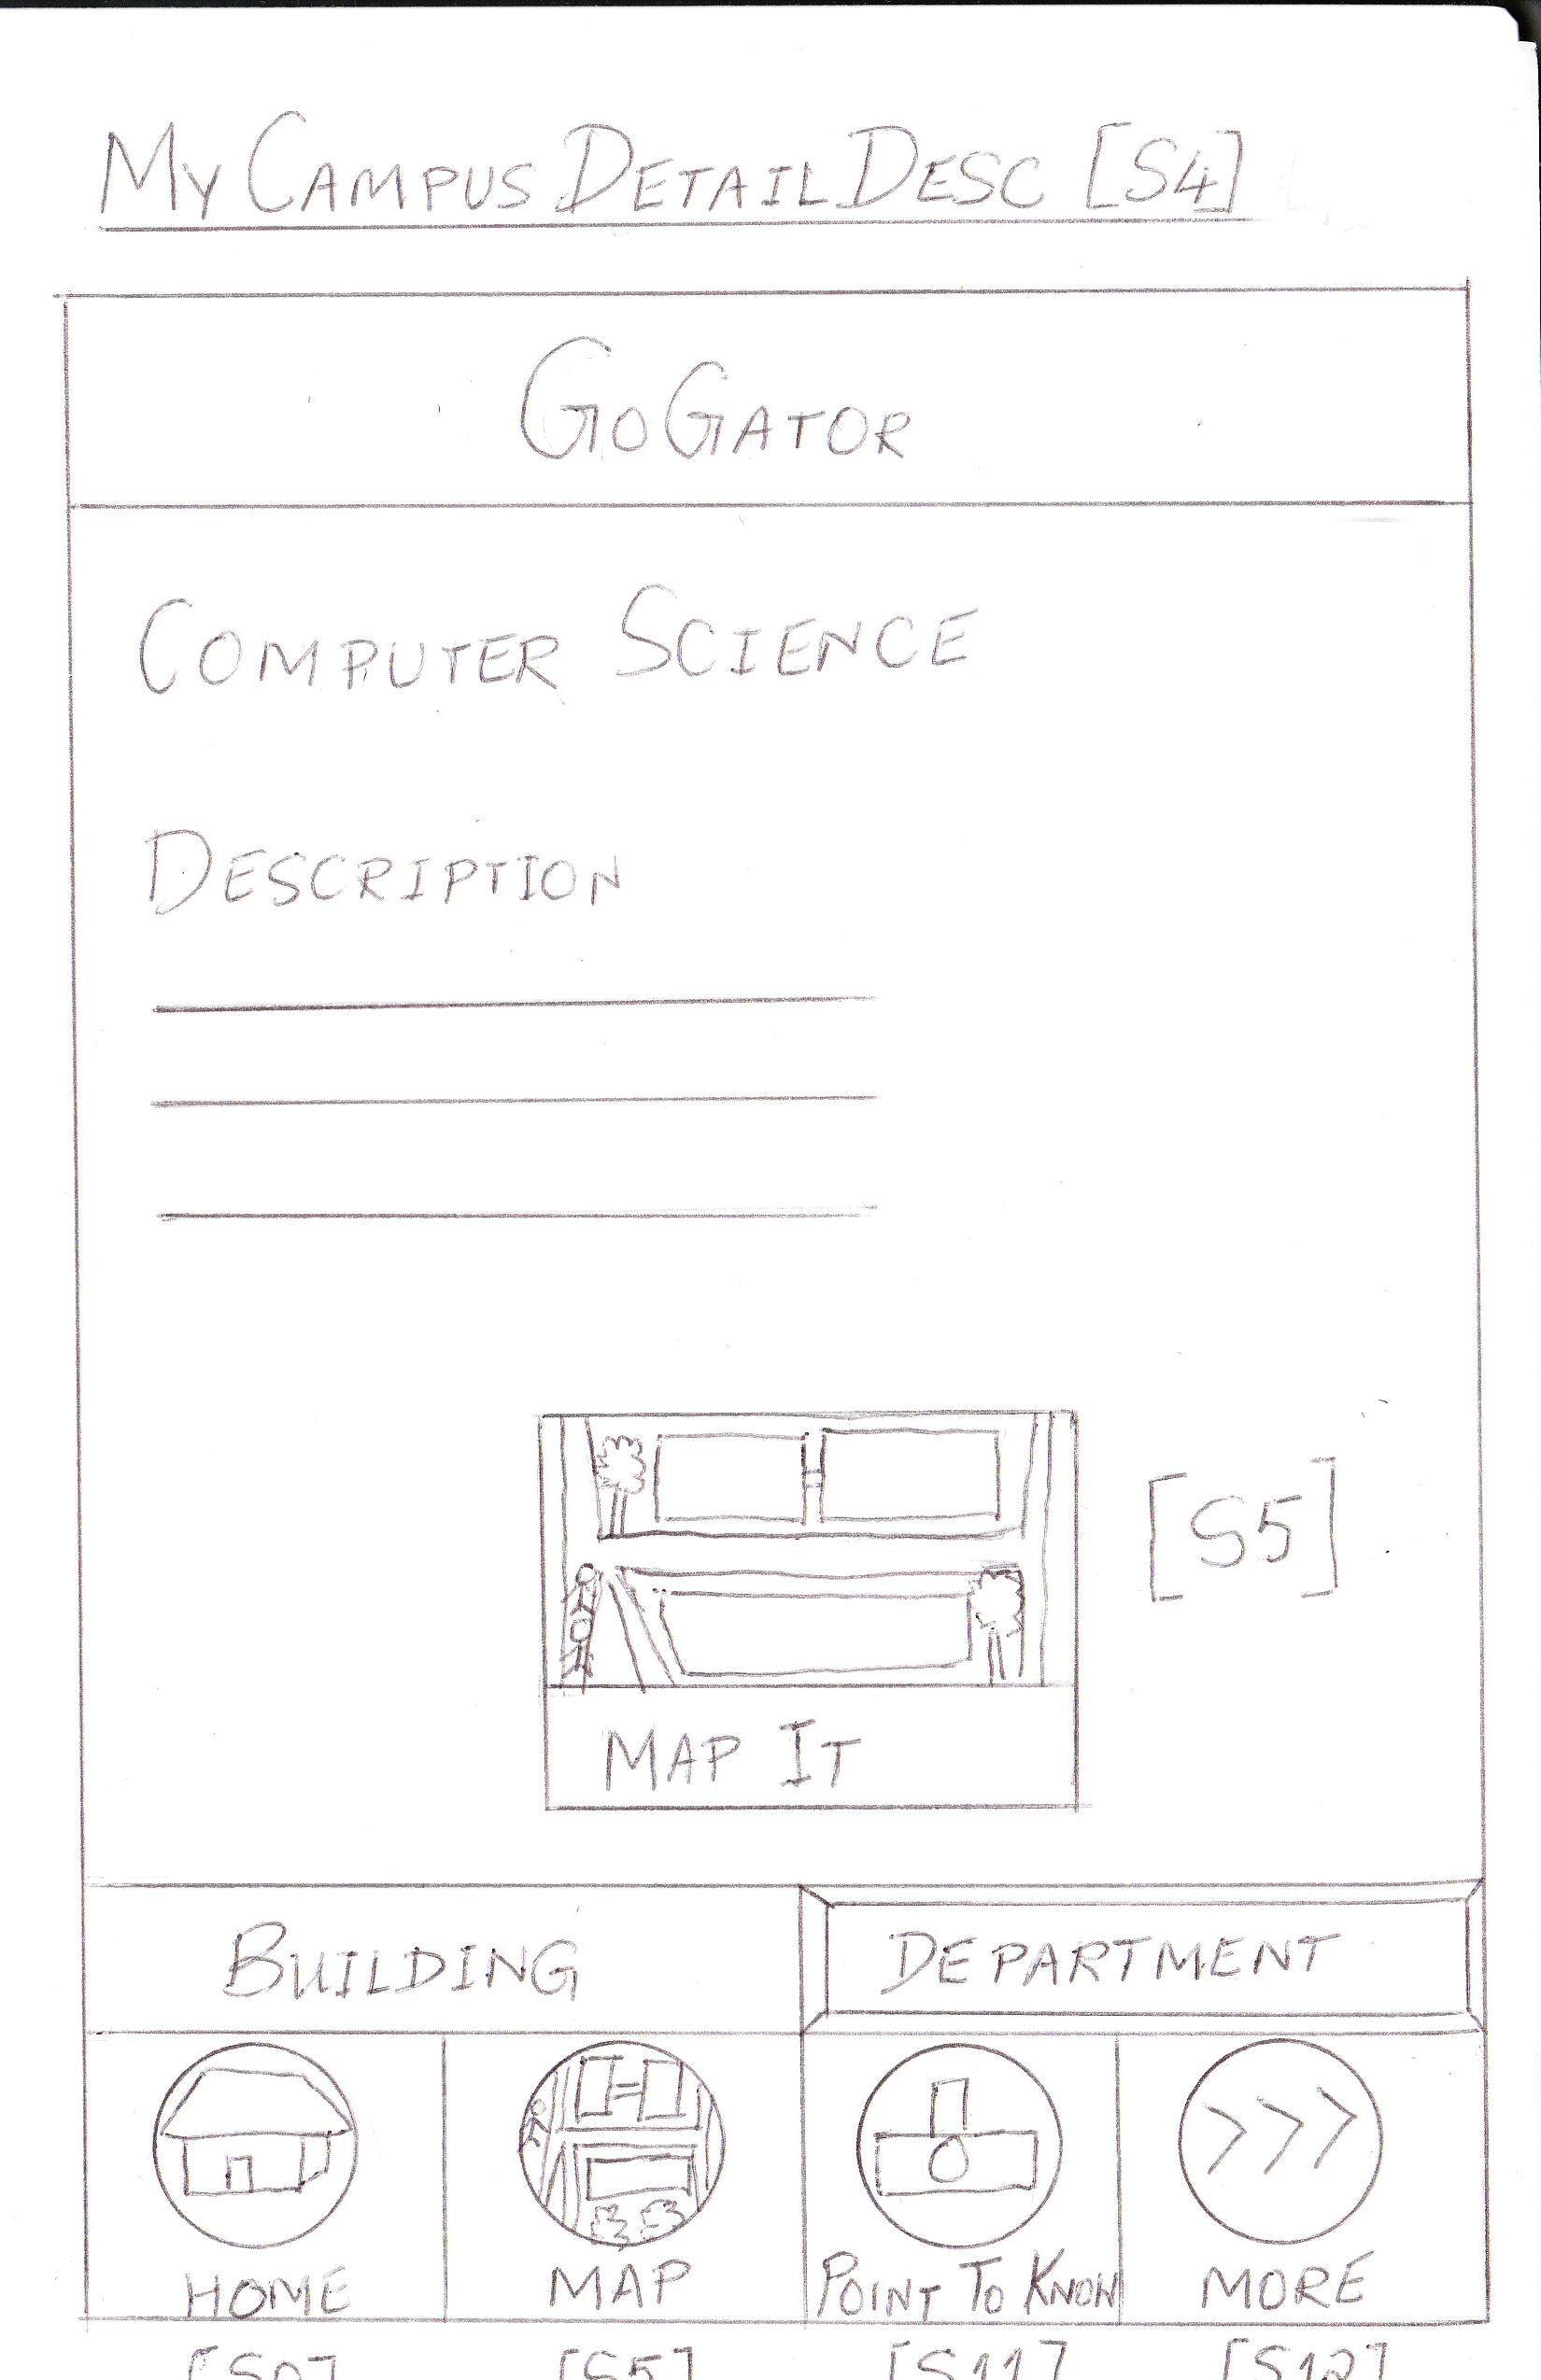 MY CAMPUS DETAIL DESC [S4]
GOGATOR
COMPUTER SCIENCE
DESCRIPTION
[S5]
MAP IT
BUILDING DEPARTMENT
HOME MAP POINT TO KNOW MORE
[S5] [S11] [S12]